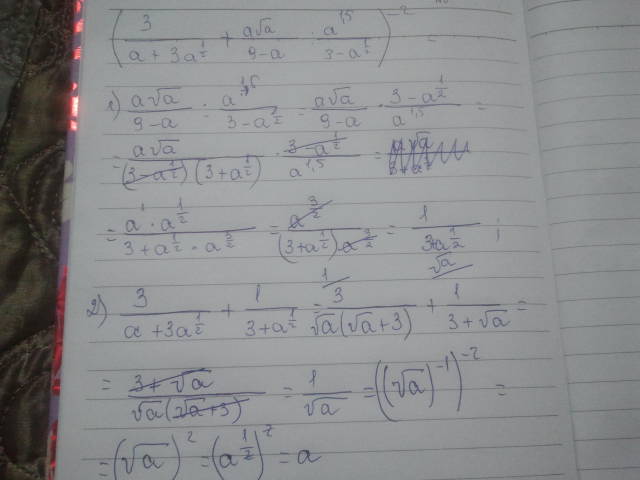 (3/(a + 3a^(1/2)) + a√a/(9 - a) : a^(1,5)/(3 - a^(1/2)))^(-2) =
1) a√a/(9 - a) : a^(1,5)/(3 - a^(1/2)) = a√a/(9 - a) · (3 - a^(1/2))/a^(1,5) =
= a√a/((3 - a^(1/2))(3 + a^(1/2))) · (3 - a^(1/2))/a^(1,5) =
= a^1 · a^(1/2)/(3 + a^(1/2) · a^(3/2)) = a^(3/2)/((3 + a^(1/2)) a^(3/2)) = 1/(3 + a^(1/2)) ;
2) 3/(a + 3a^(1/2)) + 1/(3 + a^(1/2)) = 3/(√a(√a + 3)) + 1/(3 + √a) =
= (3 + √a)/(√a(√a + 3)) = 1/√a = ((√a)^(-1))^(-2) =
= (√a)^2 = (a^(1/2))^2 = a